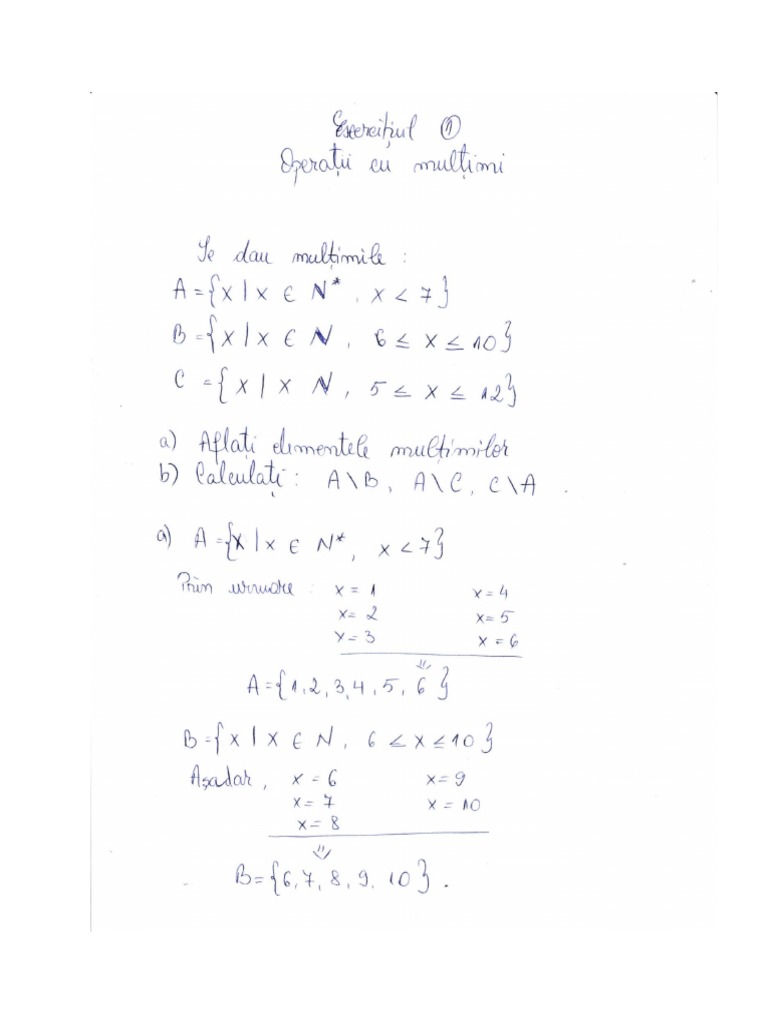 Exercițiul ①
Operații cu mulțimi
Se dau mulțimile :
A={x | x ∈ N*, x < 7}
B={x | x ∈ N, 6 ≤ x ≤ 10}
C ={x | x N, 5 ≤ x ≤ 12}
a) Aflați elementele mulțimilor
b) Calculați : A\B, A\C, C\A.
a) A={x | x ∈ N*, x < 7}
Prin urmare : x = 1 x = 4
x = 2 x = 5
x = 3 x = 6
⇓
A={1,2,3,4,5,6}
B={x | x ∈ N, 6 ≤ x ≤ 10}
Așadar, x = 6 x = 9
x = 7 x = 10
x = 8
⇓
B={6,7,8,9,10}.